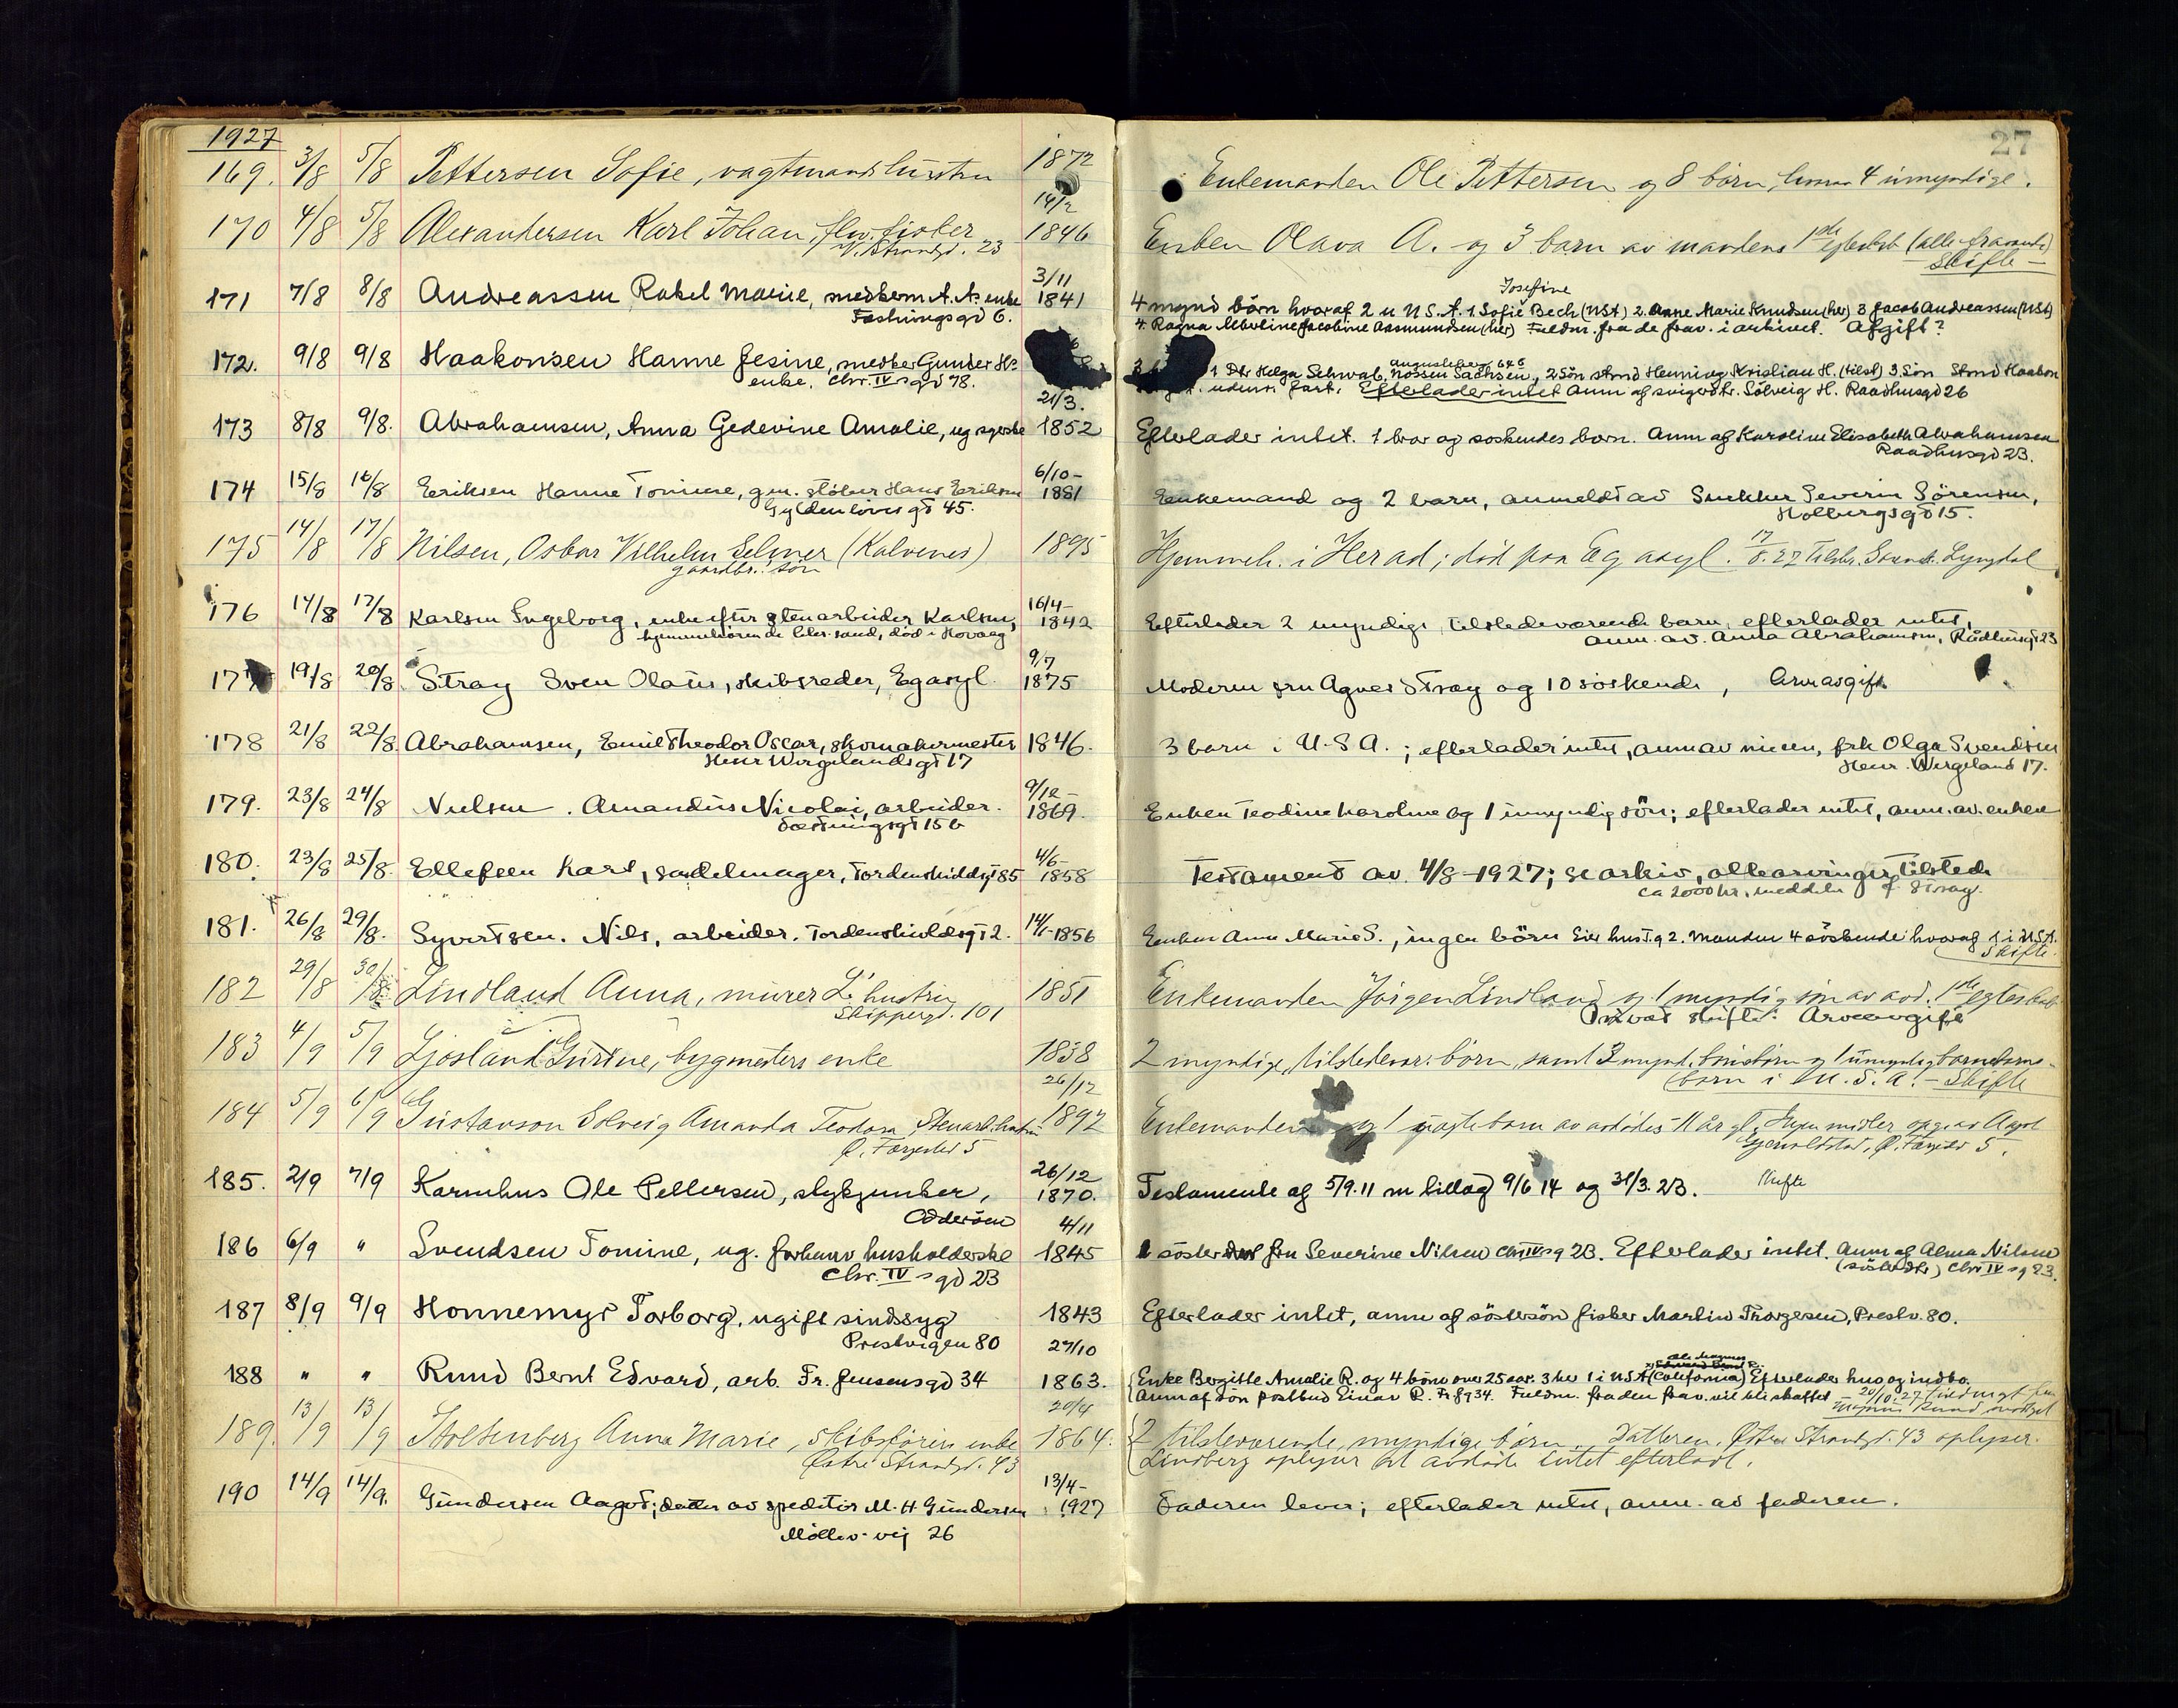 1927
27
169. 3/8 5/8 Pettersen Sofie, vagtmands hustru 1872 Enkemanden Ole Pettersen og 8 børn, hvorav 4 umyndige.
14/2
170 4/8 5/8 Alexandersen Karl Johan, fhv. fisker 1846 Enken Olava A. og 3 barn av mandens 1ste egteskab (alle fravær.)
V. Strandgt. 23 Skifte
3/11 Josefine
171 7/8 8/8 Andreassen Rakel Marie, enke 1841 4 mynd børn hvoraf 2 u U S. A. 1. Sofie Bech (USA) 2. Anne Marie Knudsen (her) 3 Jacob Andreassen (USA)
Festningsgd 6. 4. Ragna Jacobine Aasmundsen (her) Fuldm. fra de frav. i arkivet. Afgift?
172. 9/8 9/8 Haakonsen Hanne Jesine, Gunder H's 1 Dtr Helga Schwab, Nossen Sachsen, 2 Søn Henning Kristian H. (tilst) 3. Søn Haakon
enke. Chr. IVs gd 78. udenr. fart. Efterlader intet Anm af svigerdtr. Solveig H. Raadhusgd 26
21/3.
173 8/8 9/8. Abrahamsen, Anna Gedevine Amalie, ug syerske 1852 Efterlader intet. 1 bror og søskendes barn. Anm af Karoline Elisabeth Abrahamsen
Raadhusgd 23.
6/10-
174 15/8 16/8 Eriksen Hanne Tomine, gm. støber Hans Eriksen 1881 Enkemand og 2 barn, anmeldt av Snekker Severin Sörensen,
Gyldenlövesgt 45. Holbergsgd 15.
175 14/8 17/8 Nilsen, Oskar Vilhelm Selmer (Kalvenes) 1895 Hjemmeh. i Herad; död paa Eg asyl. 17/8. 27 Lyngdal
gaardbr. sön
16/4-
176 14/8 17/8 Karlsen Ingeborg, enke efter stenarbeider Karlsen, 1842 Efterlader 2 myndige tilstedeværende barn, efterlader intet,
hjemmehörende sand, död i Hövaag anm. av. Anna Abrahamsen, Rådhusgt 23
9/7
177 19/8 20/8. Stray Sven Olaus, skibsreder, Eg asyl. 1875 Moderen fru Agnes Stray og 10 söskende, Arveavgift
178 21/8 22/8. Abrahamsen, Emil Theodor Oscar, skomakermester 1846. 3 barn i U.S.A.; efterlader intet, anm av niecen, frk Olga Svendsen
Henr Wergelandsgt 17 Henr. Wergeland 17.
9/12-
179. 23/8 24/8 Nielsen. Amandus Nicolai, arbeider. 1869. Enken Teodine Karoline og 1 umyndig sön; efterlader intet, anm. av. enken
Festningsgt 15 b
4/6-
180. 23/8 25/8. Ellefsen Karl, sadelmager, Tordenskioldsgt 85 1858 Testament av 4/8-1927; se arkiv, alle arvinger tilstede
ca 2000 kr, Stray.
181. 26/8 29/8. Syvertsen. Nils, arbeider. Tordenskioldsgt 2. 14/1-1856 Enken Anna Marie S., ingen börn Eier hus T.g 2. Manden 4 söskende hvoraf 1 i USA.
Skifte.
182 29/8 30/8. Lindland Anna, murer L's hustru 1851 Enkemanden Jörgen Lindland og 1 myndig sön av avd. 1ste egteskab
Skippergt. 101 Privat skifte. Arveavgift
183 4/9 5/9 Ljosland Gurine, bygmesters enke 1838 2 myndige, tilstedevær. börn, samt 3 mynd. og 1 umyndig barnebarns-
26/12 (barn i U.S.A. - Skifte
184 5/9 6/9 Gustavson Solveig Amanda Teodora Stenarb. hustru 1892 Enkemanden og 1 uegte barn av avdödes 11 år gl. Ingen midler opg. av
Ø. Færgested 5 Ø. Færgested 5.
26/12
185. 2/9 7/9 Karuhus Ole Pettersen, stykjunker, 1870. Testamente af 5/9. 11 m tillæg 9/6 14 og 31/3. 23. Skifte
Odderöen
4/11
186 6/9 " Svendsen Tomine, ug. forhenv husholderske 1845 1 söster fru Severine Nilsen Chr IVs g 23. Efterlader intet. Anm af Alma Nilsen
Chr. IVs gd 23 (sösterdtr) Chr IVs g 23.
187 8/9 9/9 Honnemyr Torborg, ugift sindssyg 1843 Efterlader intet, anm af söstersön fisker Martin Thorgersen, Prestv. 80.
Prestvigen 80
27/10
188 " " Rund Bernt Edvard, arb. Fr. Jensensgd 34 1863. Enke Bergitte Amalie R. og 4 børn over 25 aar. 3 her 1 i USA (California) Efterlader hus og indbo.
Anm af Sön postbud Einar R. Fr J g 34. Fuldm. fra den frav. vil bli skaffet - 20/10. 27
20/4
189. 13/9 13/9 Stoltenberg Anna Marie, skibsförers enke 1864. 2 tilsteværende, myndige börn. Datteren, Østre Strandgt. 43 oplyser.
Østre Strandgt. 43 Lindberg oplyser at avdöde intet efterlod.
13/4-
190 14/9 14/9. Gundersen Aagot; datter av speditör M. H Gundersen 1927 Faderen lever; efterlader intet, anm. av faderen.
Möllev. vej 26